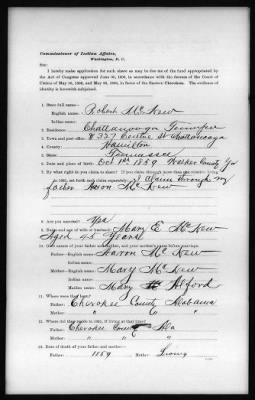 Commissioner of Indian Affairs,
Washington, D. C.
Sir:
I hereby make application for such share as may be due me of the fund appropriated by
the Act of Congress approved June 30, 1906, in accordance with the decrees of the Court of
Claims of May 18, 1905, and May 28, 1906, in favor of the Eastern Cherokees. The evidence
of identity is herewith subjoined.
1. State full name—
English name: Robert McKew
Indian name:
2. Residence: Chattanooga Tennessee
3. Town and post office: # 327 Centre St Chattanooga
4. County: Hamilton
5. State: Tennessee
6. Date and place of birth: Oct 1st 1859 Walker County Ga
7. By what right do you claim to share? If you claim through more than one
in 1851, set forth each claim separately: I Claim through my
father Aaron McKew
8. Are you married? Yes
9. Name and age of wife or husband: Mary E McKew
Aged 45 Years
10. Give names of your father and mother, and your mother's name before marriage.
Father—English name: Aaron McKew
Indian name:
Mother—English name: Mary McKew
Indian name:
Maiden name: Mary Alford
11. Where were they born?
Father: Cherokee County Alabama
Mother: " Co "
12. Where did they reside in 1851, if living at that time?
Father: Cherokee County Ala
Mother: " " "
13. Date of death of your father and mother—
Father: 1859 Mother: Living